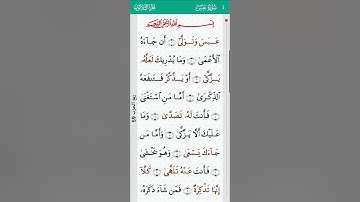 سورة عبس
بِسْمِ اللَّهِ الرَّحْمَٰنِ الرَّحِيمِ
عَبَسَ وَتَوَلَّىٰ ۝١ أَن جَاءَهُ
الْأَعْمَىٰ ۝٢ وَمَا يُدْرِيكَ لَعَلَّهُ
يَزَّكَّىٰ ۝٣ أَوْ يَذَّكَّرُ فَتَنفَعَهُ
الذِّكْرَىٰ ۝٤ أَمَّا مَنِ اسْتَغْنَىٰ
۝٥ فَأَنتَ لَهُ تَصَدَّىٰ ۝٦ وَمَا
عَلَيْكَ أَلَّا يَزَّكَّىٰ ۝٧ وَأَمَّا مَن
جَاءَكَ يَسْعَىٰ ۝٨ وَهُوَ يَخْشَىٰ
۝٩ فَأَنتَ عَنْهُ تَلَهَّىٰ ۝١٠ كَلَّا
إِنَّهَا تَذْكِرَةٌ ۝١١ فَمَن شَاءَ ذَكَرَهُ
ربع الحزب 59